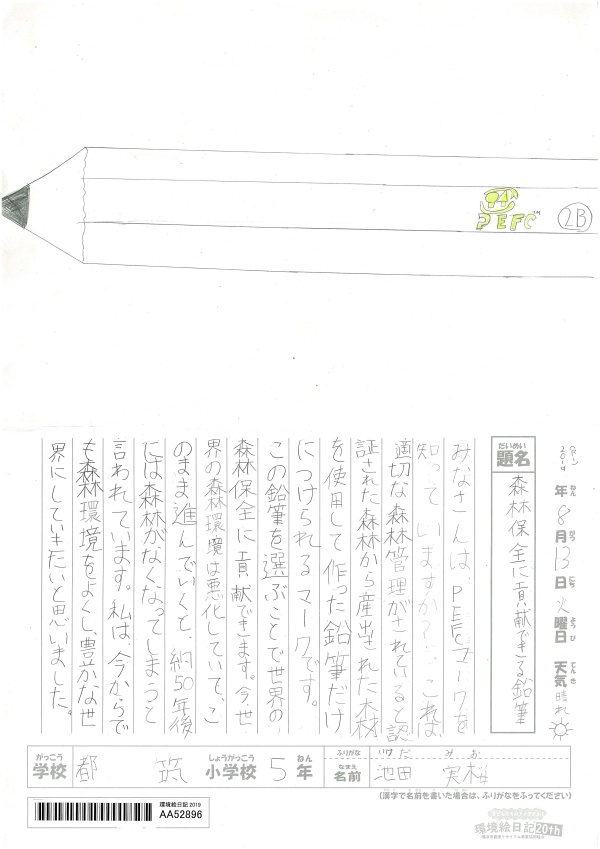 PEFC
2B
2019年8月13日火曜日 天気晴れ
ねん がつ にち ようび てんき
だいめい
題名
森林保全に貢献できる鉛筆
みなさんは、PEFCマークを
知っていますか？これは
適切な森林管理がされていると認
証された森林から産出された木材
を使用して作った鉛筆だけ
につけられるマークです。
この鉛筆を選ぶことで世界の
森林保全に貢献できます。今、世
界の森林環境は悪化していて、こ
のまま進んでいくと、約50年後
には森林がなくなってしまうと
言われています。私は、今からで
も森林環境をよくし、豊かなせ
界にしていきたいと思いました。
がっこう しょうがっこう ねん ふりがな いけだ みお
学校 都筑 小学校 5年 なまえ 名前 池田 実桜
(漢字で名前を書いた場合は、ふりがなをふってください)
環境絵日記 2019
AA52896
環境絵日記20th